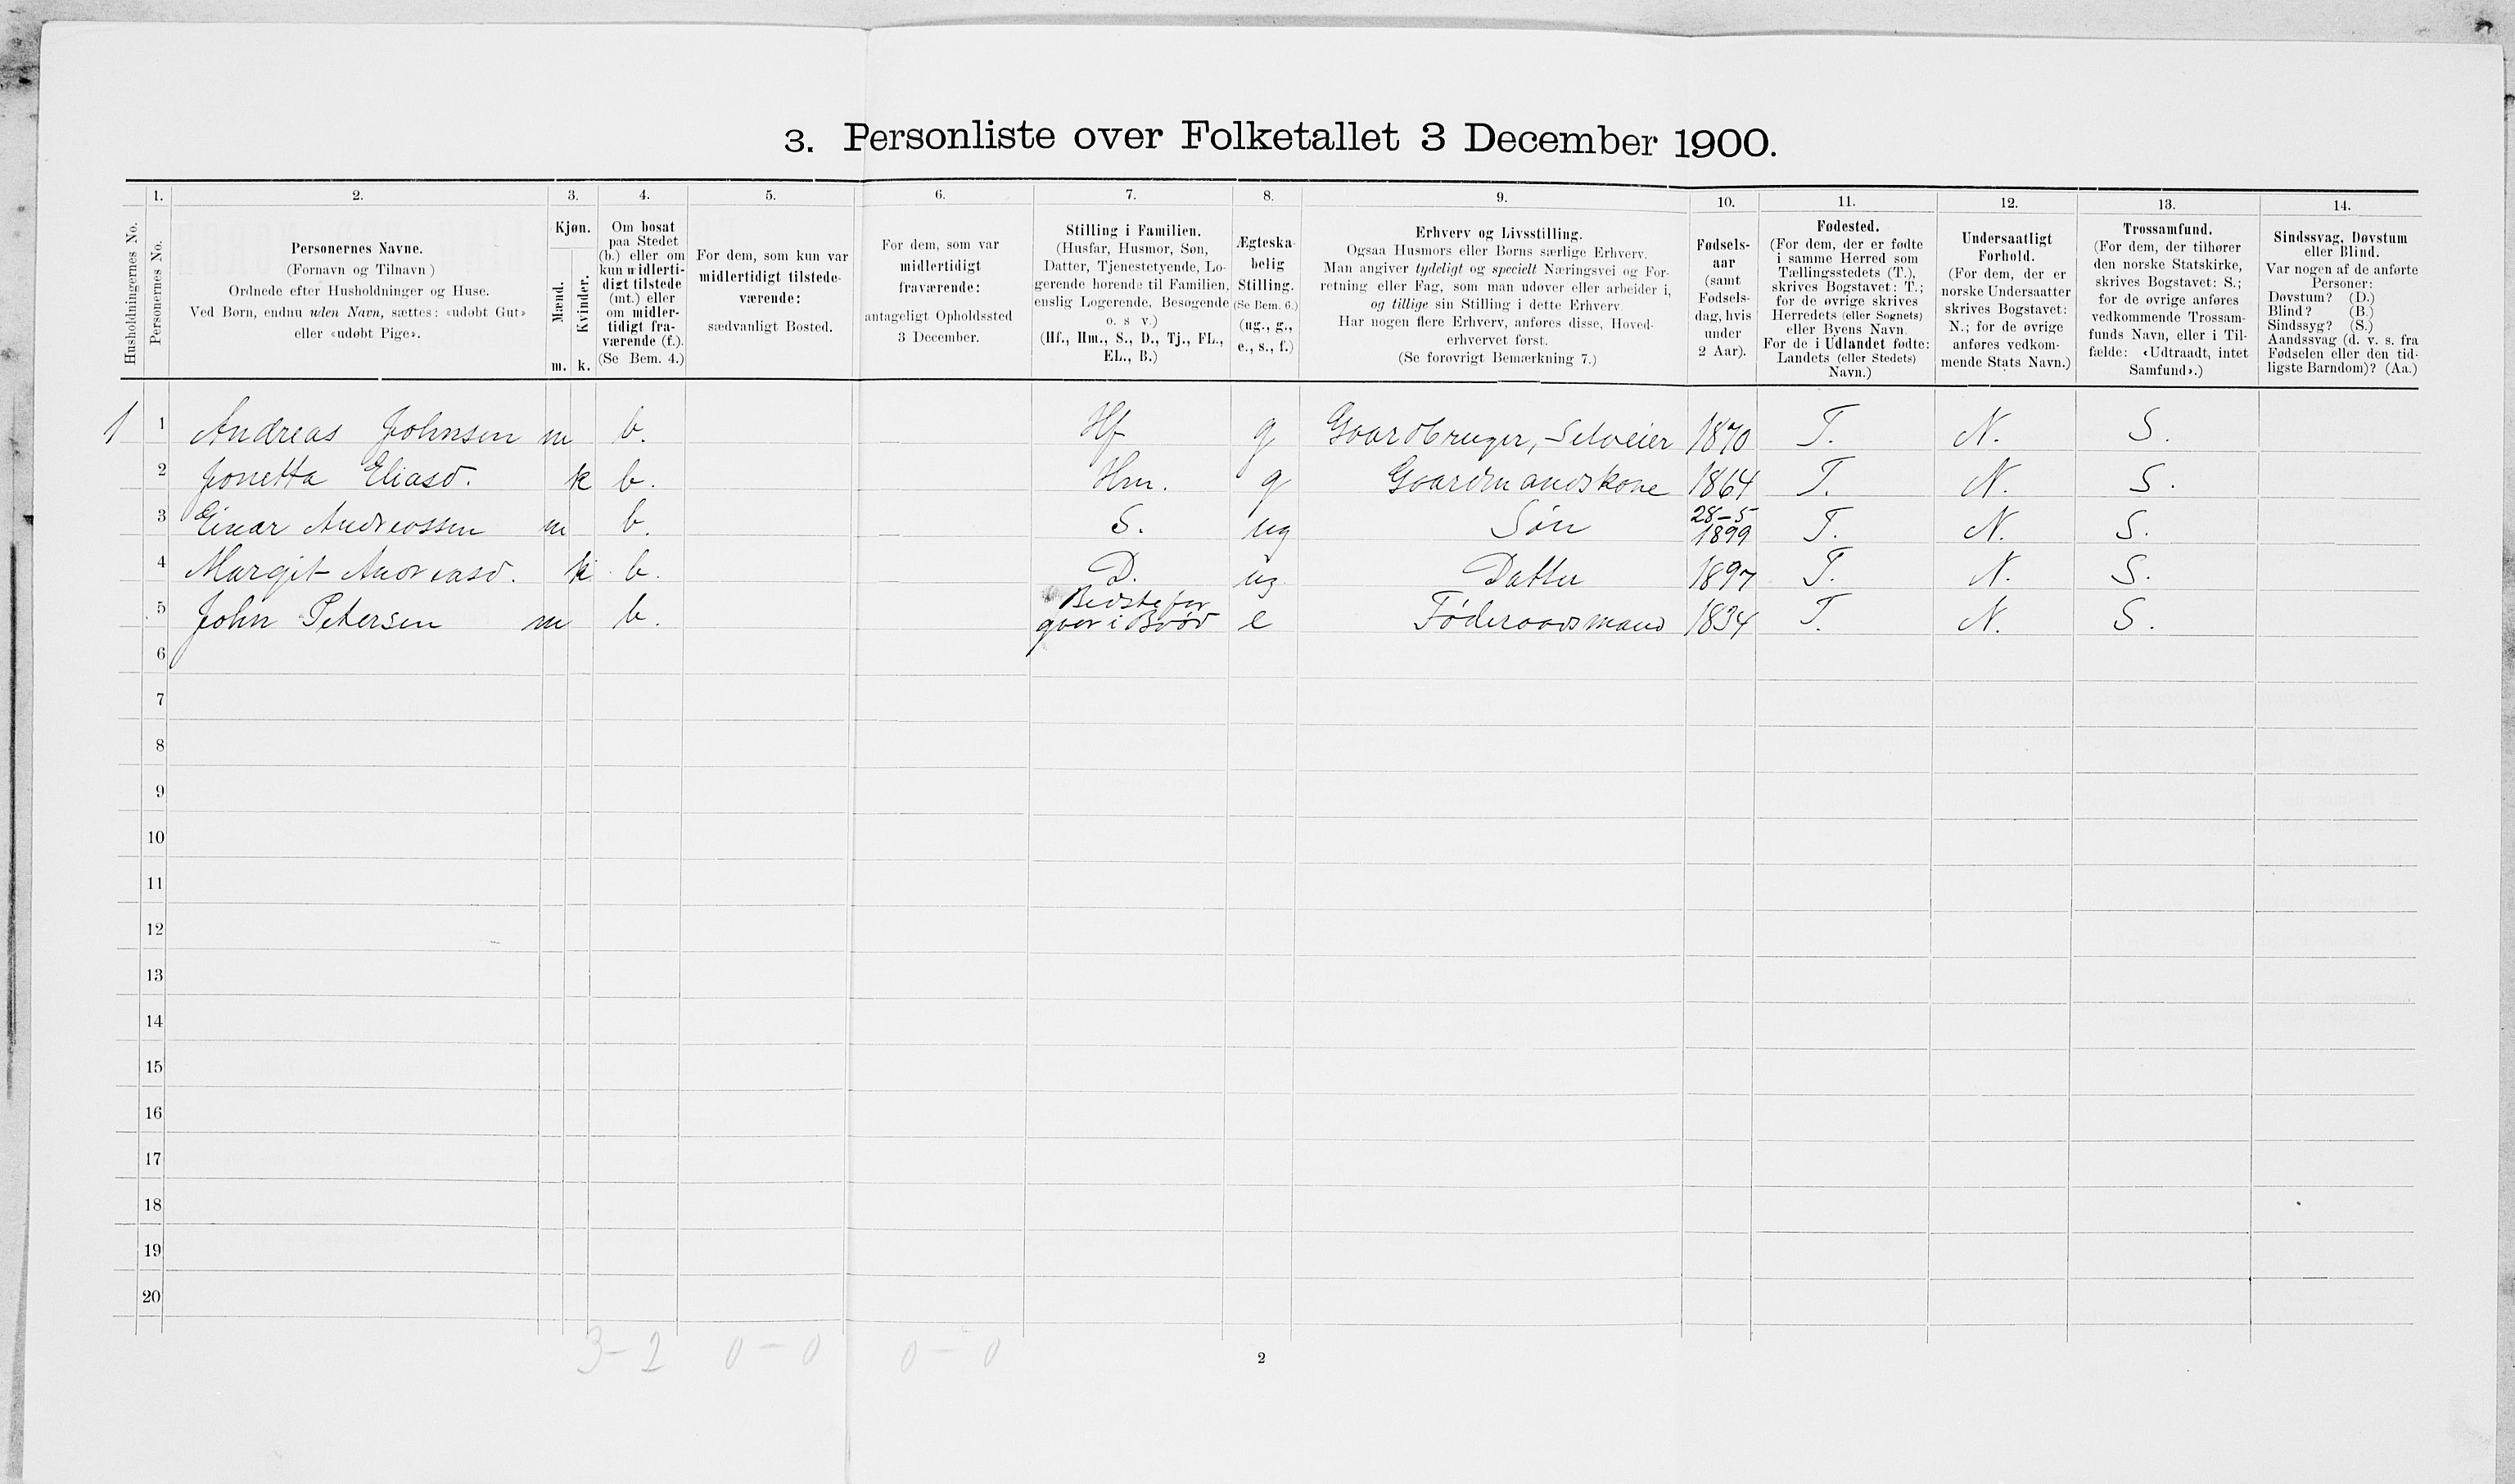 3. Personliste over Folketallet 3 December 1900.
1. 2. 3. 4. 5. 6. 7. 8. 9. 10. 11. 12. 13. 14.
Husholdningernes No.
Personernes No.
Personernes Navne.
(Fornavn og Tilnavn)
Ordnede efter Husholdninger og Huse.
Ved Børn, endnu uden Navn, sættes: «udøbt Gut»
eller «udøbt Pige».
Kjøn.
Mænd.
Kvinder.
m. k.
Om bosat
paa Stedet
(b.) eller om
kun midlerti-
digt tilstede
(mt.) eller
om midler-
tidigt fra-
værende (f.).
(Se Bem. 4.)
For dem, som kun var
midlertidigt tilstede-
værende:
sædvanligt Bosted.
For dem, som var
midlertidigt
fraværende:
antageligt Opholdssted
3 December.
Stilling i Familien.
(Husfar, Husmor, Søn,
Datter, Tjenestetyende, Lo-
gerende hørende til Familien,
enslig Logerende, Besøgende
o. s v.)
(Hf., Hm., S., D., Tj., FL.,
EL., B.)
Ægteska-
belig
Stilling.
(Se Bem. 6.)
(ug., g.,
e., s., f.)
Erhverv og Livsstilling.
Ogsaa Husmors eller Børns særlige Erhverv.
Man angiver tydeligt og specielt Næringsvei og For-
retning eller Fag, som man udøver eller arbeider i,
og tillige sin Stilling i dette Erhverv.
Har nogen flere Erhverv, anføres disse, Hoved-
erhvervet først.
(Se forøvrigt Bemærkning 7.)
Fødsels-
aar
(samt
Fødsels-
dag, hvis
under
2 Aar).
Fødested.
(For dem, der er fødte
i samme Herred som
Tællingsstedets (T.),
skrives Bogstavet: T.;
for de øvrige skrives
Herredets (eller Sognets)
eller Byens Navn.
For de i Udlandet fødte:
Landets (eller Stedets)
Navn.)
Undersaatligt
Forhold.
(For dem, der er
norske Undersaatter
skrives Bogstavet:
N.; for de øvrige
anføres vedkom-
mende Stats Navn.)
Trossamfund.
(For dem, der tilhører
den norske Statskirke,
skrives Bogstavet: S.;
for de øvrige anføres
vedkommende Trossam-
funds Navn, eller i Til-
fælde: «Udtraadt, intet
Samfund».)
Sindssvag, Døvstum
eller Blind.
Var nogen af de anførte
Personer:
Døvstum? (D.)
Blind? (B.)
Sindssyg? (S.)
Aandssvag (d. v. s. fra
Fødselen eller den tid-
ligste Barndom)? (Aa.)
1 1 Andreas Johnsen m b. Hf g Gaardbruger, Selveier 1870 T. N. S.
2 Jonetta Eliasd. k b. Hm. g Gaardmandskone 1864 T. N. S.
3 Einar Andreassen m b. S. ug Søn 28-5 1899 T. N. S.
4 Margit Andreasd. k b. D. ug Datter 1897 T. N. S.
5 John Petersen m b. Bedstefar e Føderaadsmand 1834 T. N. S.
6
7
8
9
10
11
12
13
14
15
16
17
18
19
20
3-2 0-0 0-0
2